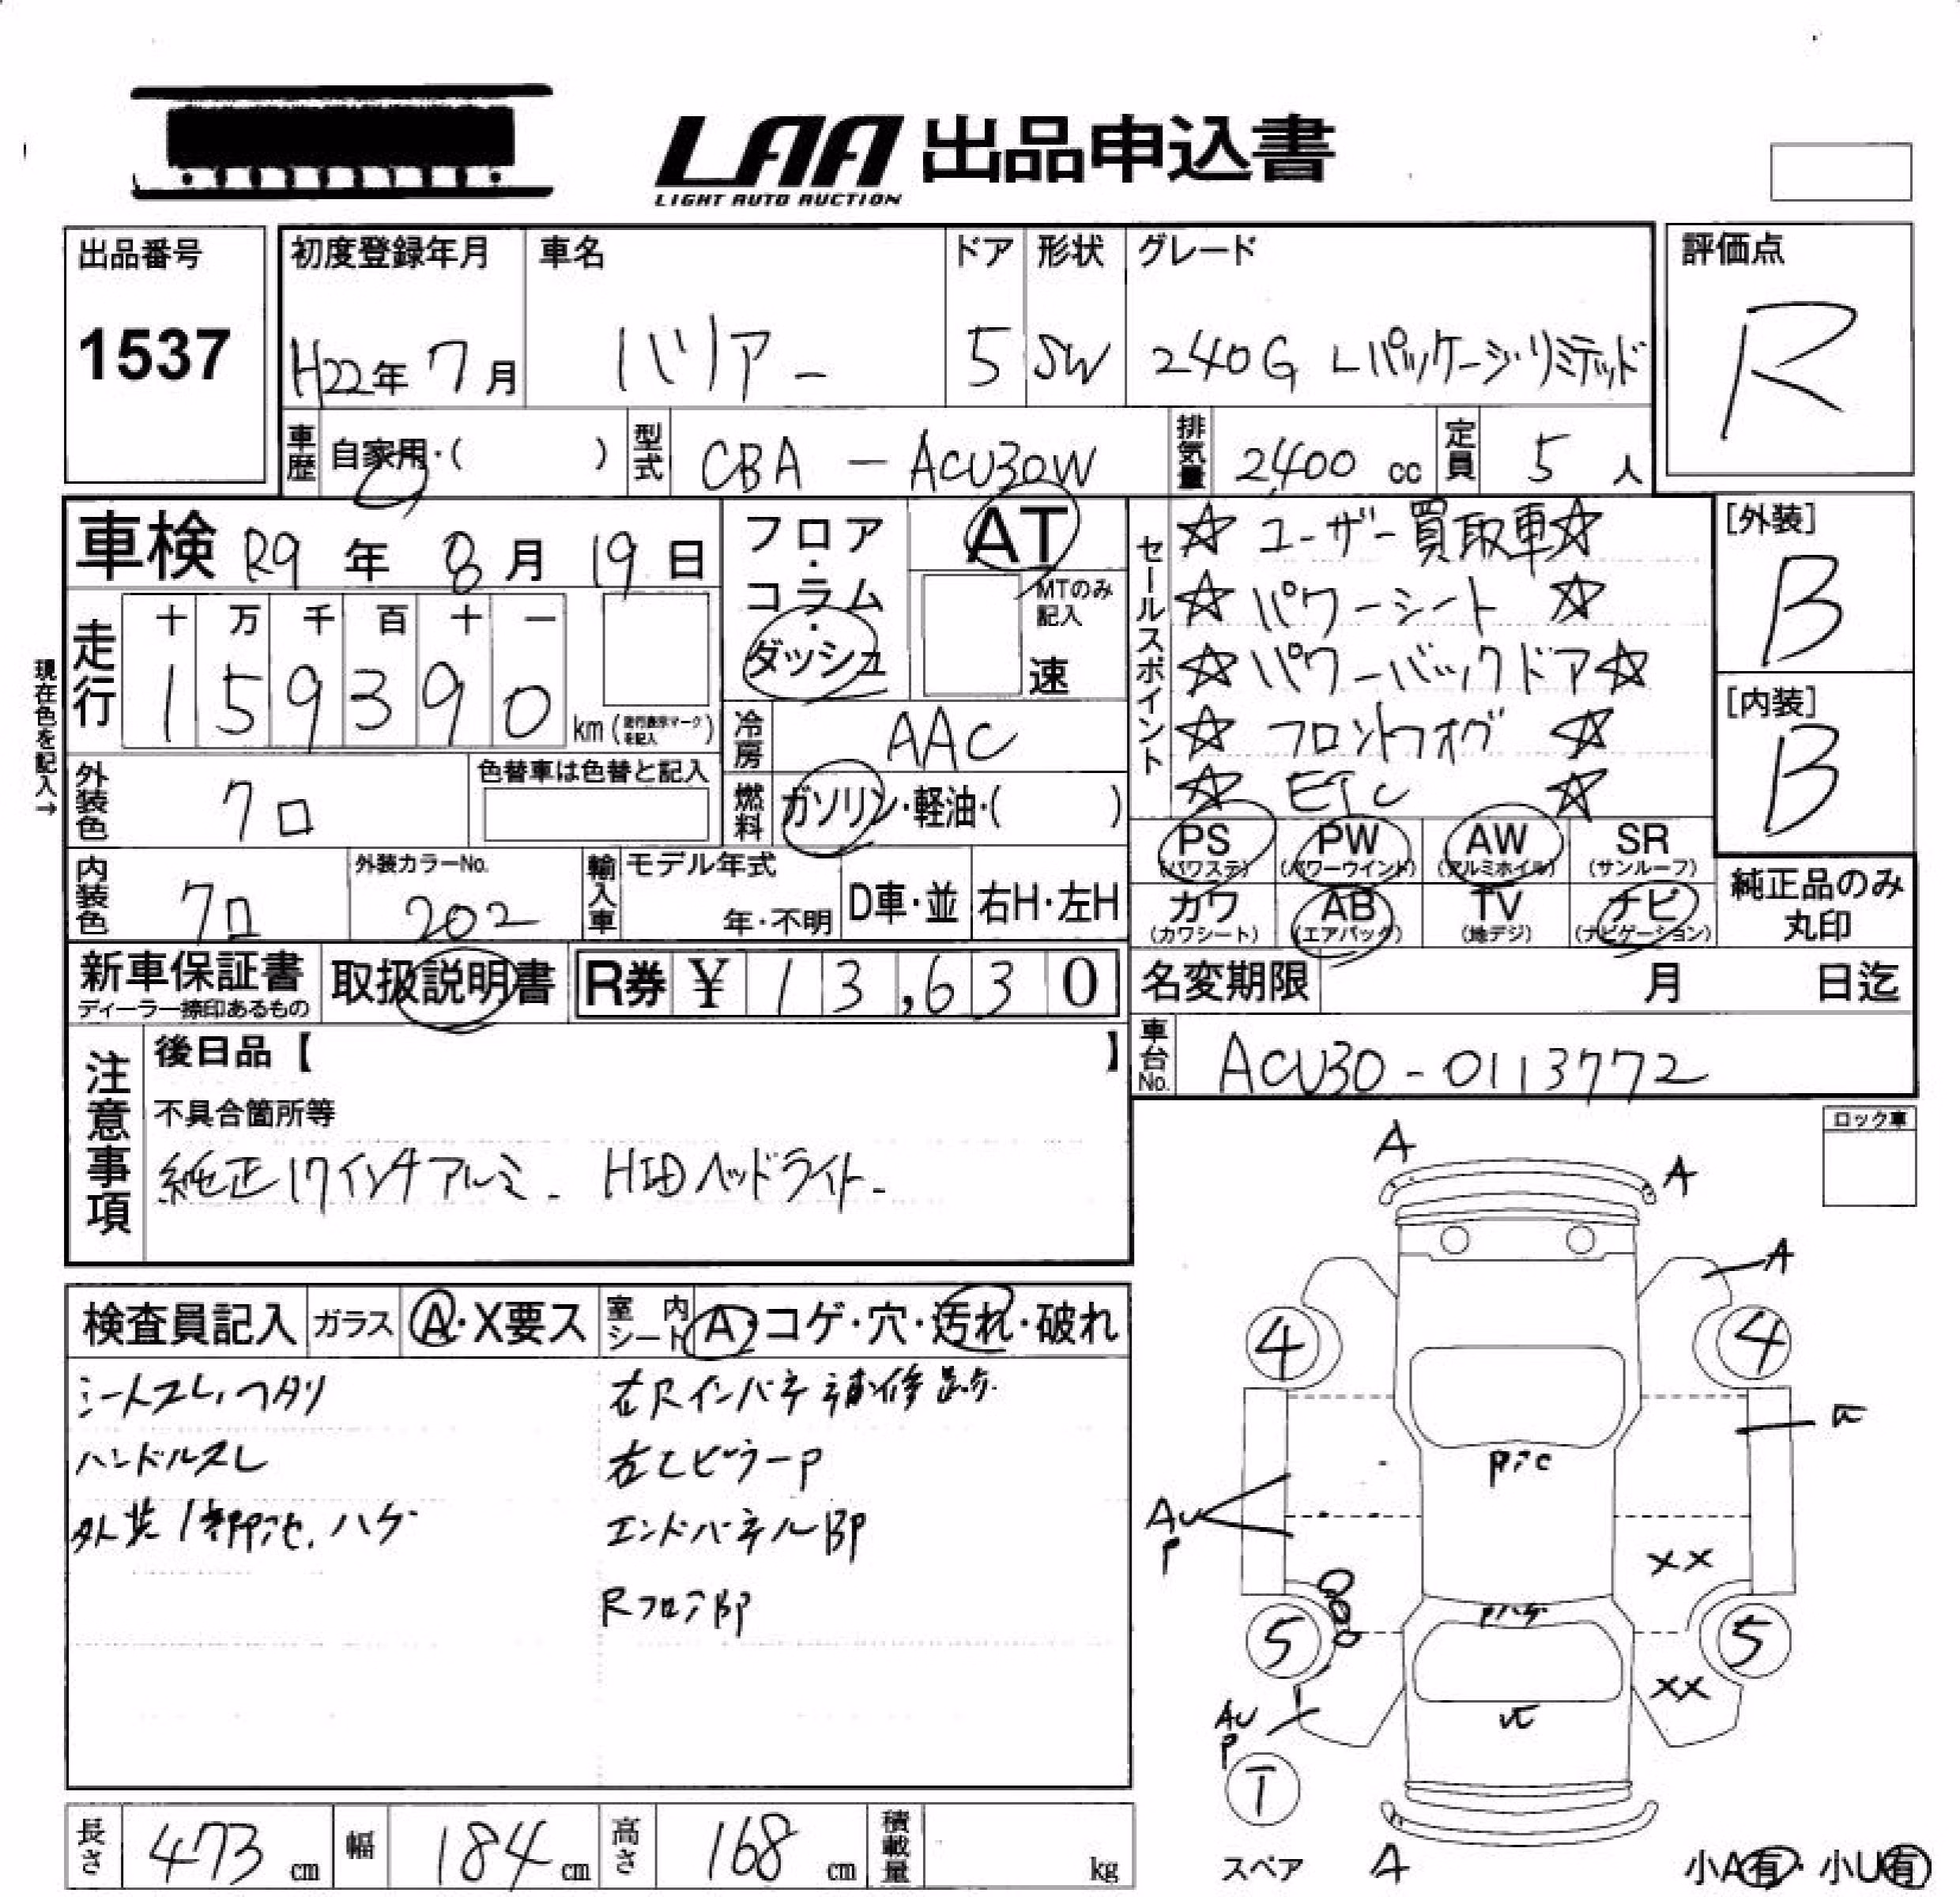 LAA 出品申込書
LIGHT AUTO AUCTION
出品番号
1537
初度登録年月
H22年 7月
車名
ハリアー
ドア
5
形状
SW
グレード
240G Lパッケージ・リミテッド
評価点
R
車歴 自家用・( )
型式 CBA - ACU30W
排気量 2,400 cc
定員 5 人
車検 R9 年 8 月 19 日
現在色を記入→
走行
十 万 千 百 十 一
1 5 9 3 9 0 km (走行表示マークを記入)
フロア・コラム・ダッシュ
AT
MTのみ記入
速
冷房 AAC
燃料 ガソリン・軽油・( )
外装色 クロ
色替車は色替と記入
内装色 クロ
外装カラーNo. 202
輸入車 モデル年式
年・不明
D車・並 右H・左H
セールスポイント
☆ ユーザー買取車☆
☆ パワーシート ☆
☆ パワーバックドア☆
☆ フロントフォグ ☆
☆ ETC ☆
[外装]
B
[内装]
B
PS (パワステ) PW (パワーウインド) AW (アルミホイル) SR (サンルーフ)
カワ (カワシート) AB (エアバック) TV (地デジ) ナビ (ナビゲーション)
純正品のみ丸印
新車保証書
ディーラー捺印あるもの
取扱説明書
R券 ¥ 13,630
名変期限 月 日迄
車台No. ACU30-0113772
注意事項
後日品【 】
不具合箇所等
純正17インチアルミ HIDヘッドライト
ロック車
検査員記入 ガラス A・X要ス
室内シート A・コゲ・穴・汚れ・破れ
シートスレ、ヘタリ
ハンドルスレ
外装1部凹、ハゲ
右Rインパネ補修跡
右Cピラーp
エンドパネルBP
RフロアBP
A
A
A
4
4
AU
P
XX
5
5
XX
AU
P
T
スペア
A
小A有・小U有
長さ 473 cm
幅 184 cm
高さ 168 cm
積載量 kg